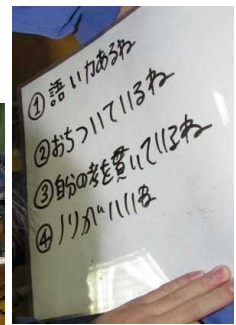 ①語い力あるね
②おちついているね
③自分の考を貫いているね
④ノリがいいね